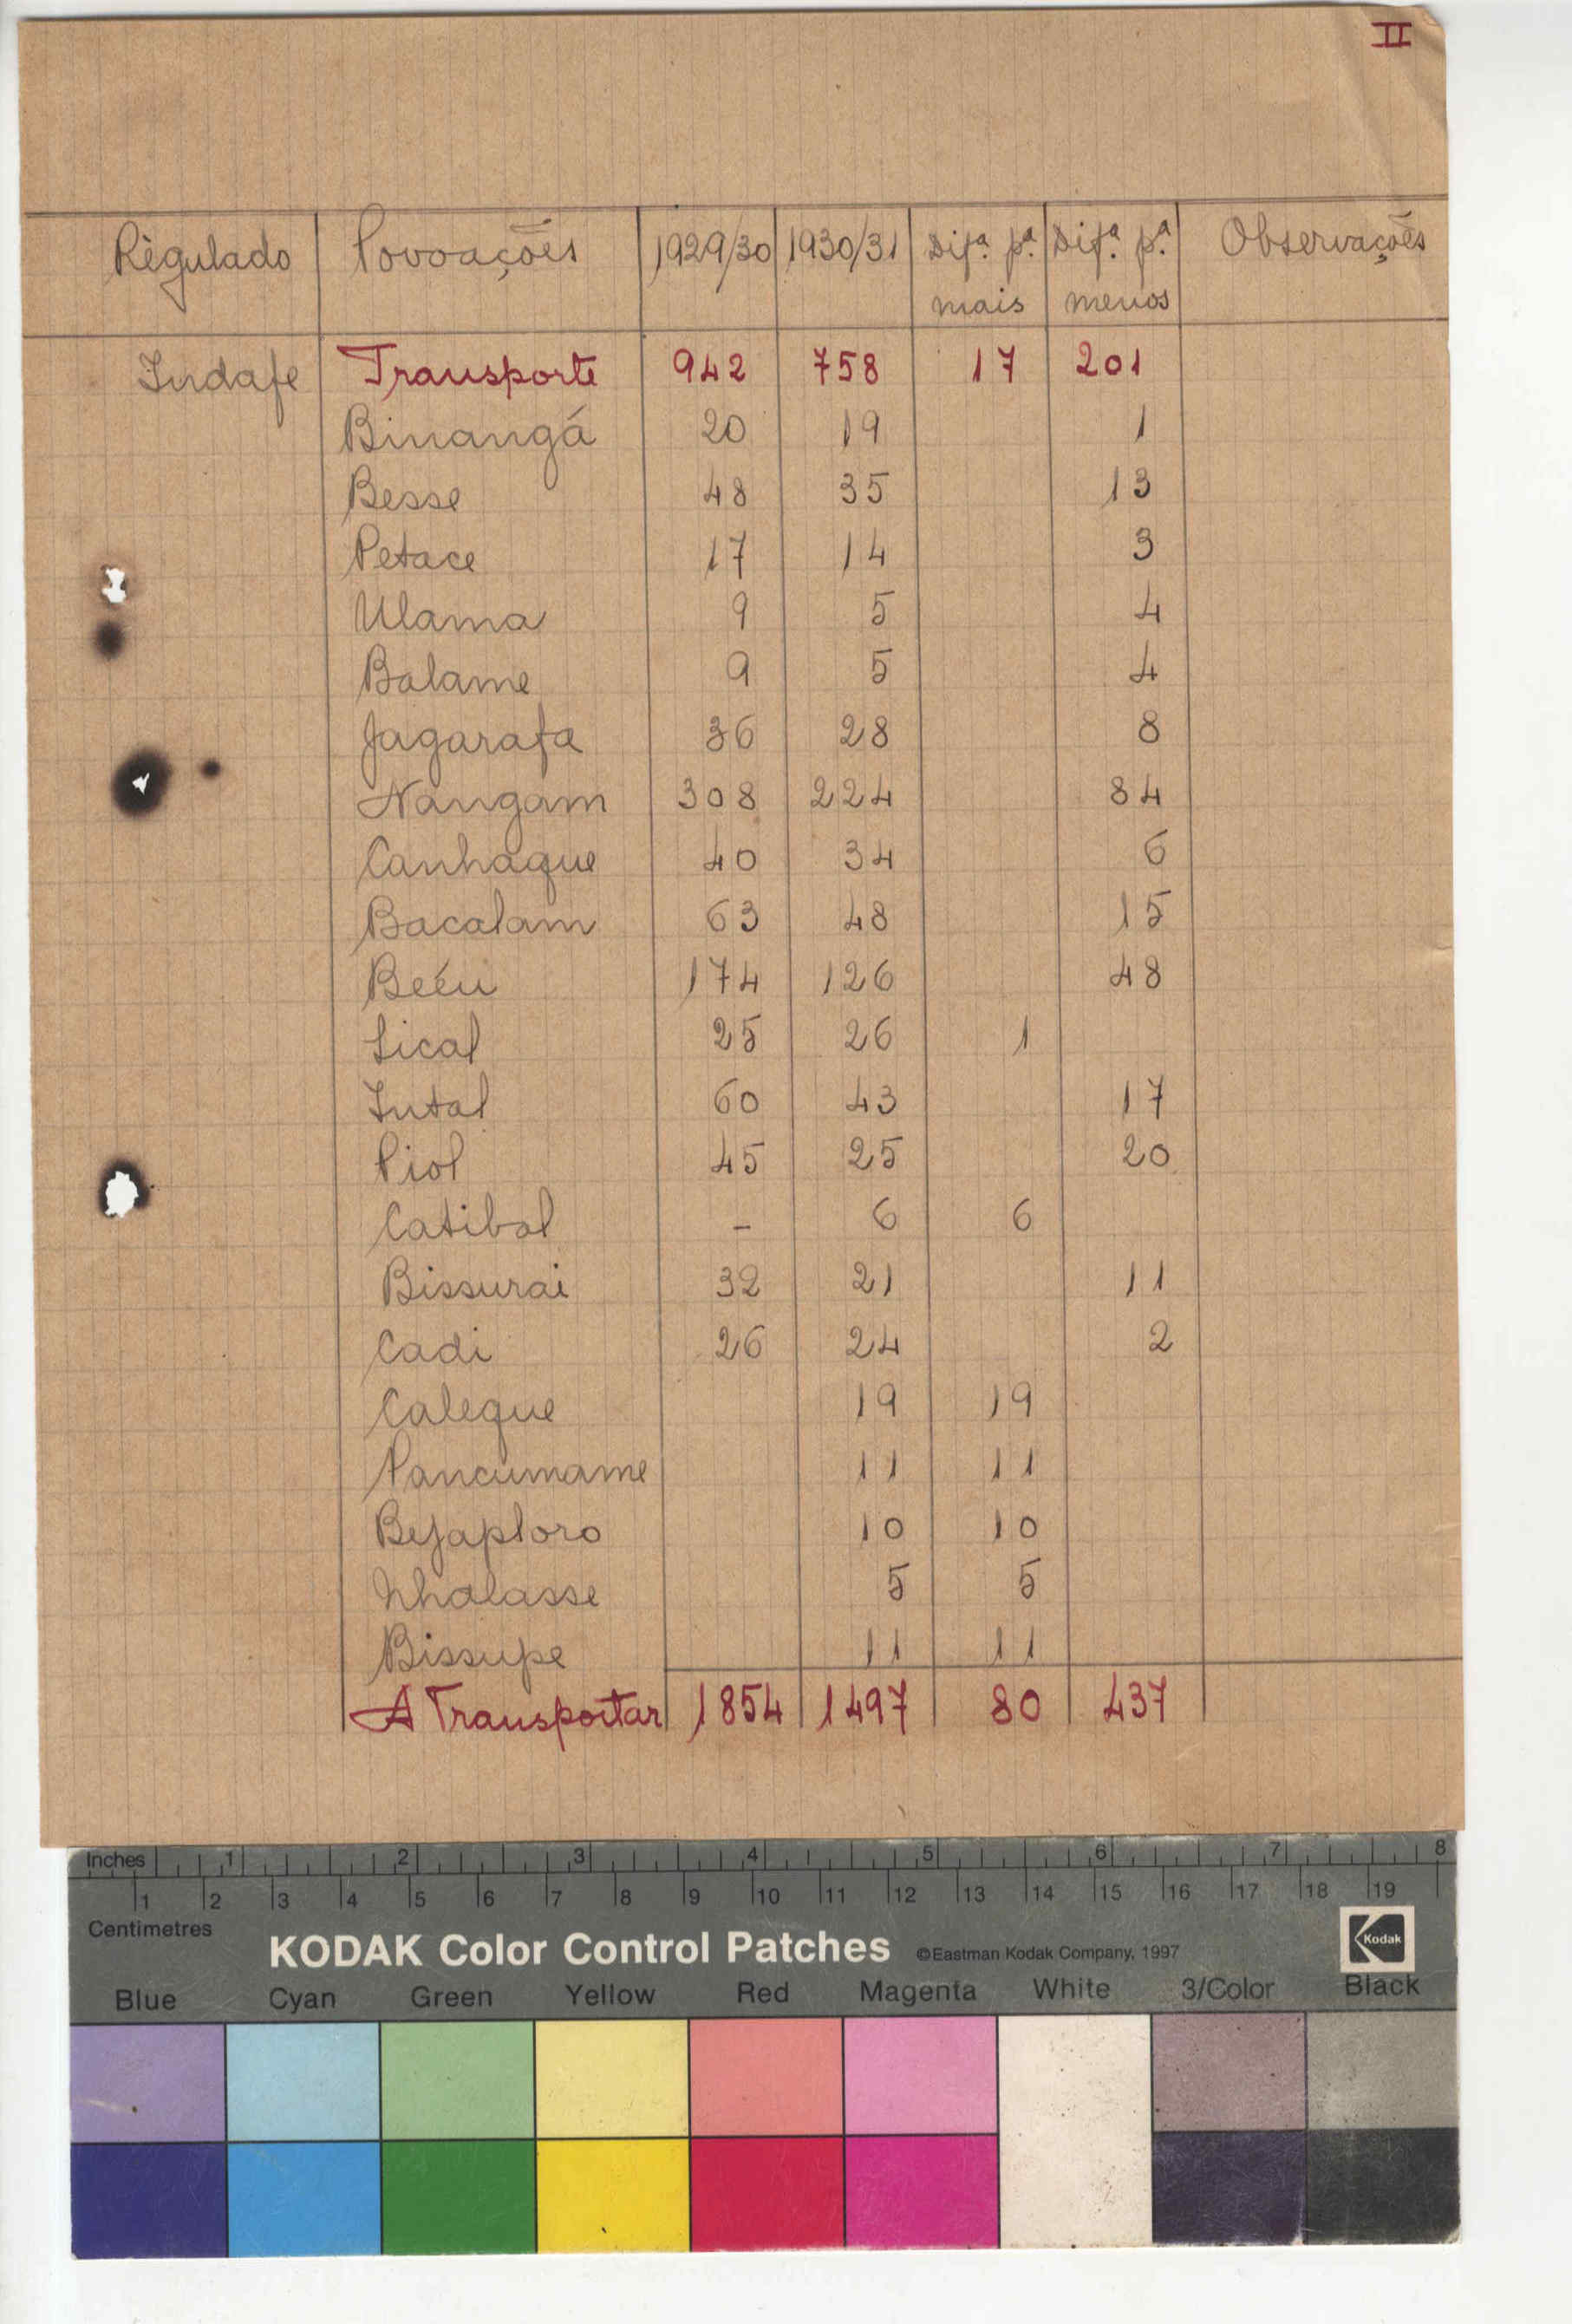 II
Règulado Povoações 1929/30 1930/31 Difª. pª. mais Difª. pª. menos Observações
Indafe Transporte 942 758 17 201
Binangá 20 19 1
Besse 48 35 13
Petace 17 14 3
Ulama 9 5 4
Balame 9 5 4
Jagarafa 36 28 8
Nangam 308 224 84
Canhaque 40 34 6
Bacalam 63 48 15
Beéu 174 126 48
Lical 25 26 1
Intal 60 43 17
Piol 45 25 20
Catibal - 6 6
Bissurai 32 21 11
Cadi 26 24 2
Caleque 19 19
Pancumame 11 11
Bejaploro 10 10
Nhalasse 5 5
Bissupe 11 11
A Transportar 1854 1497 80 437
Inches 1 2 3 4 5 6 7 8
1 2 3 4 5 6 7 8 9 10 11 12 13 14 15 16 17 18 19
Centimetres
KODAK Color Control Patches ©Eastman Kodak Company, 1997 Kodak
Blue Cyan Green Yellow Red Magenta White 3/Color Black